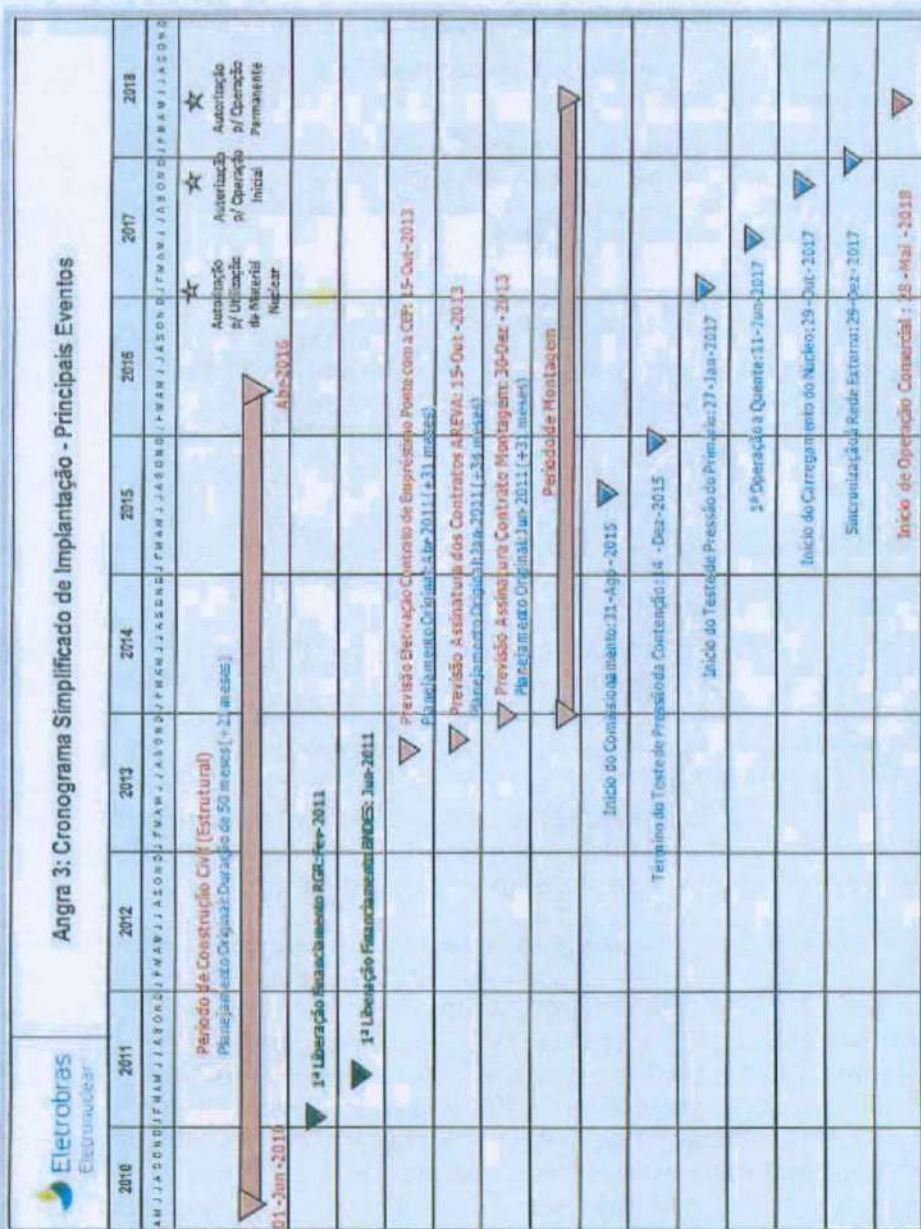 Eletrobras
Eletronuclear
Angra 3: Cronograma Simplificado de Implantação - Principais Eventos
2010 2011 2012 2013 2014 2015 2016 2017 2018
Período de Construção Civil (Estrutural)
Planejamento Original: Duração de 50 meses (+21 meses)
01-Jun-2010
Abr-2016
Autorização
p/ Utilização
de Material
Nuclear
Autorização
p/ Operação
Inicial
Autorização
p/ Operação
Permanente
1ª Liberação Financiamento RGR: Fev-2011
1ª Liberação Financiamento BNDES: Jun-2011
Previsão Efetivação Contrato de Empréstimo Ponte com a CEF: 15-Out-2013
Planejamento Original: Abr-2011 (+31 meses)
Previsão Assinatura dos Contratos AREVA: 15-Out-2013
Planejamento Original: Jan-2011 (+34 meses)
Previsão Assinatura Contrato Montagem: 30-Dez-2013
Planejamento Original: Jun-2011 (+31 meses)
Período de Montagem
Início do Comissionamento: 31-Ago-2015
Término do Teste de Pressão da Contenção: 14-Dez-2015
Início do Teste de Pressão do Primário: 27-Jan-2017
1ª Operação a Quente: 11-Jun-2017
Início do Carregamento do Núcleo: 29-Out-2017
Sincronização Rede Externa: 29-Dez-2017
Início de Operação Comercial: 28-Mai-2018